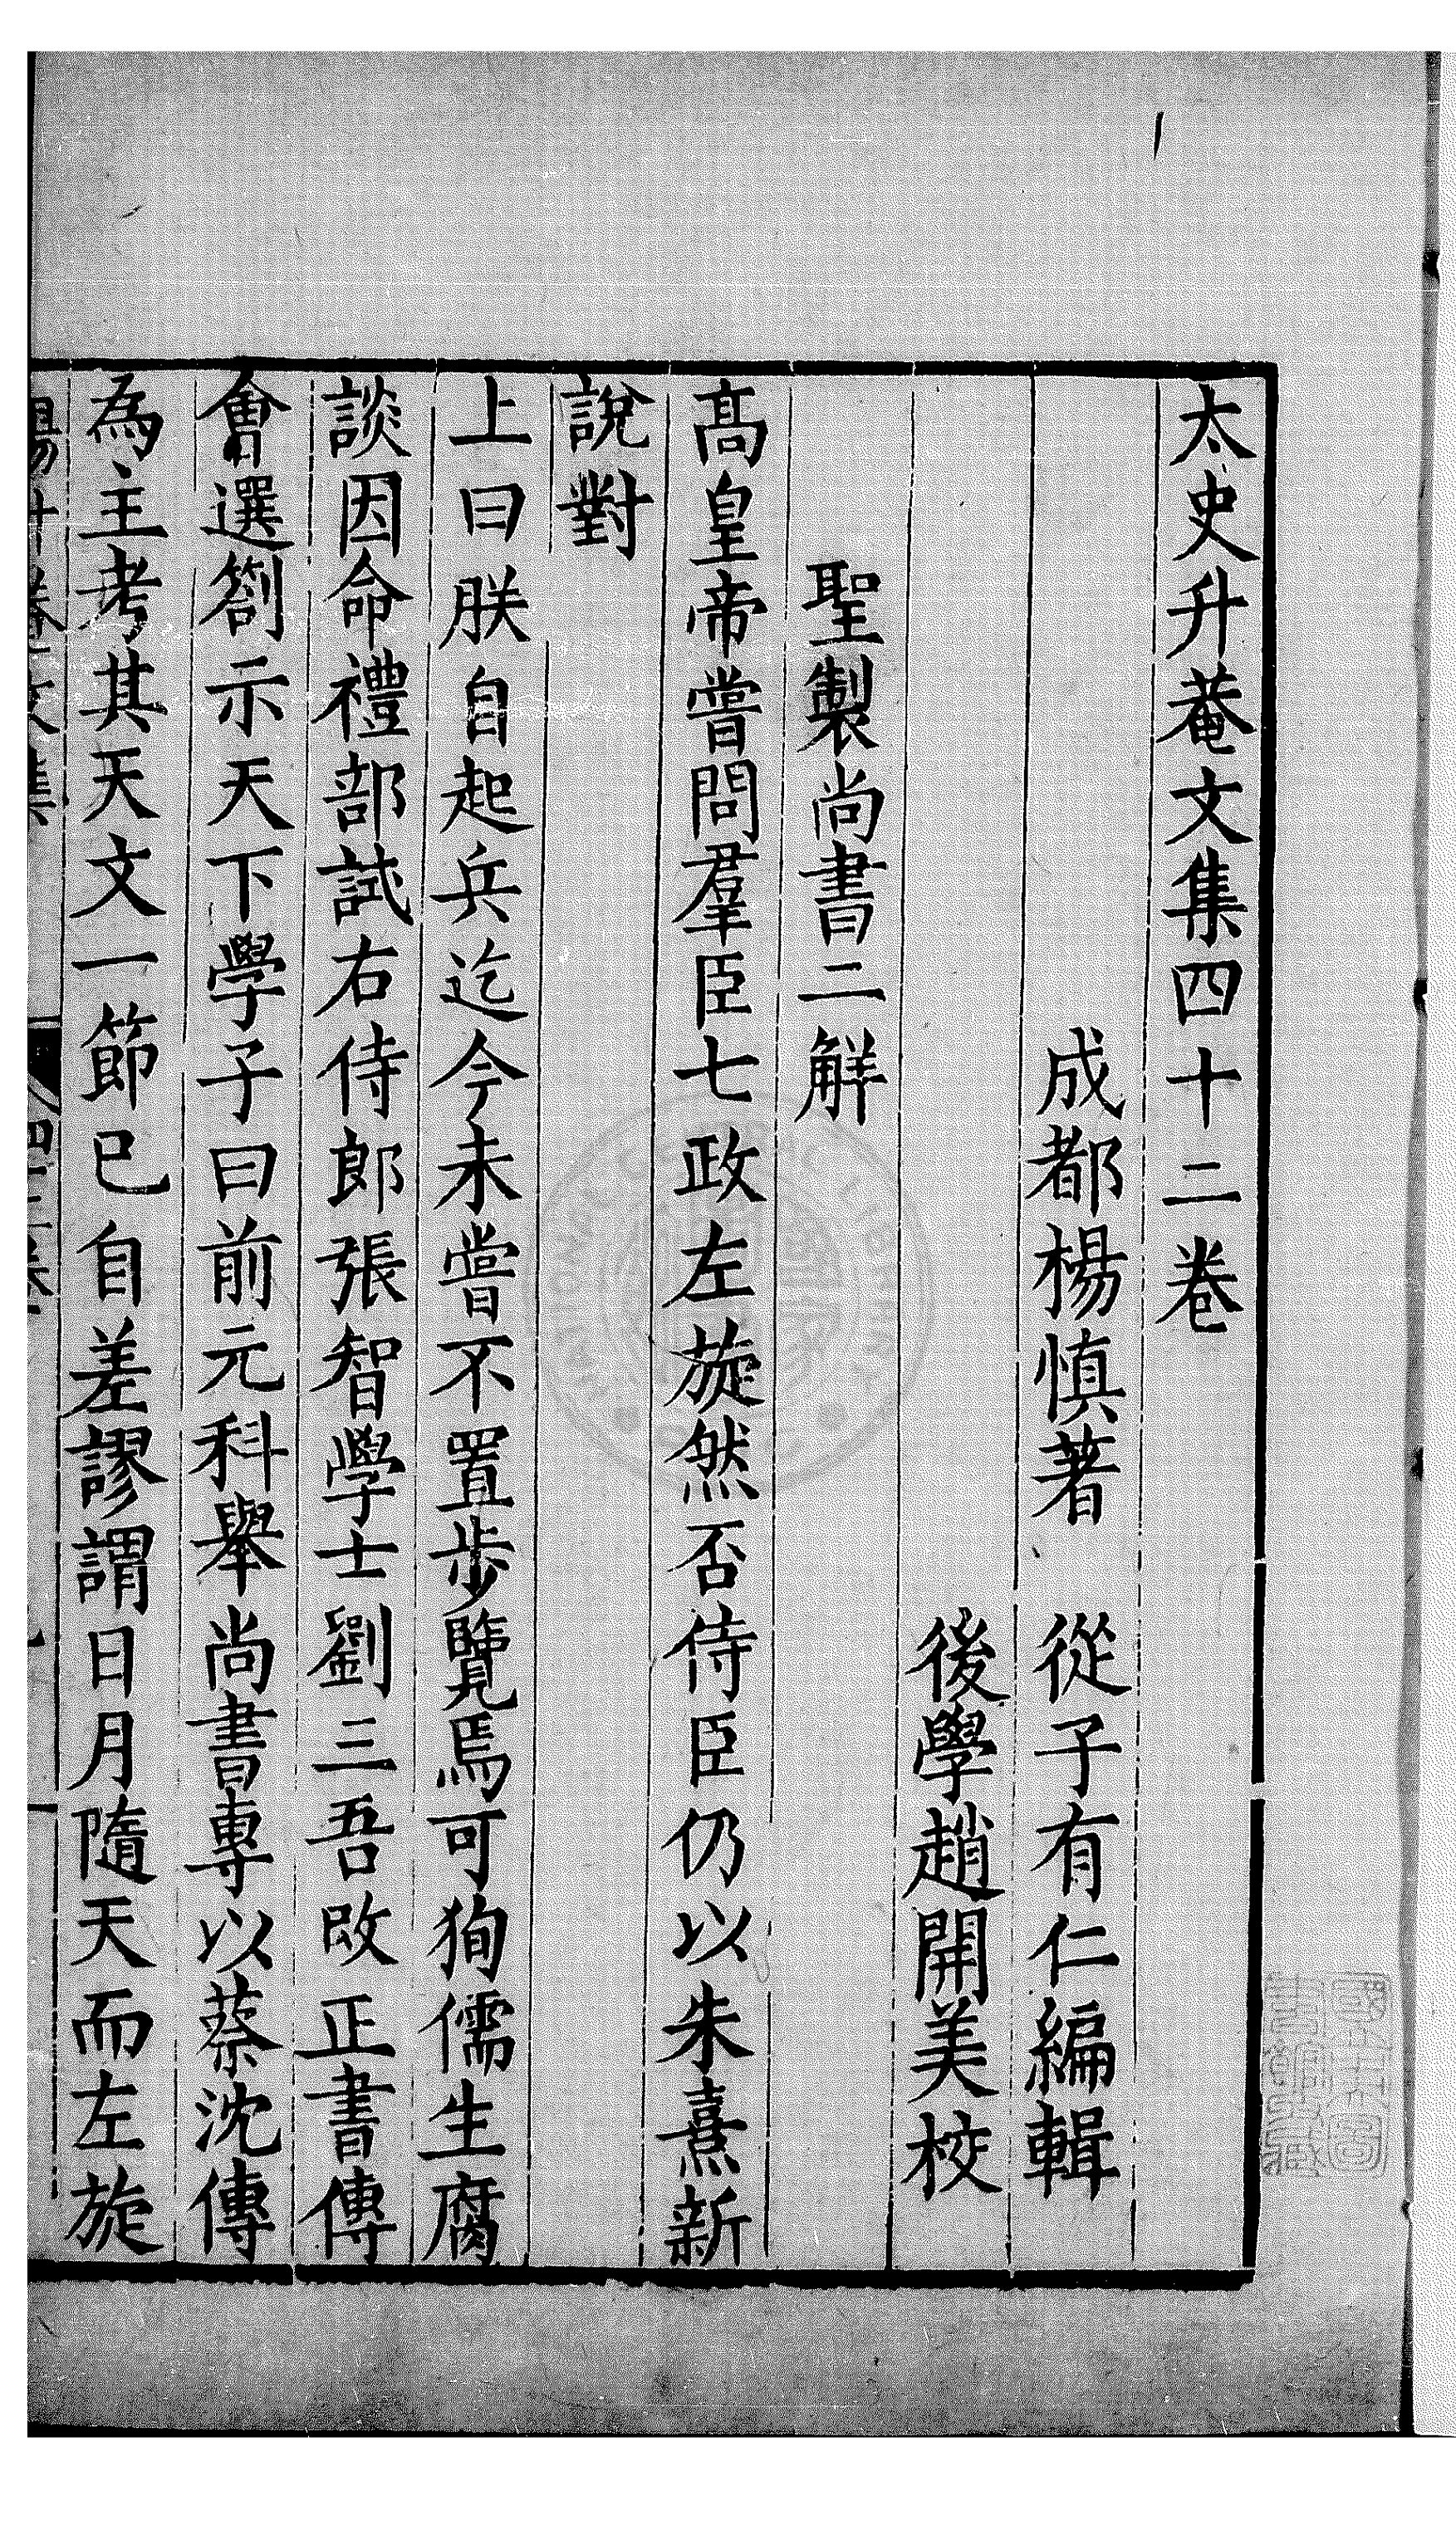 太史升菴文集四十二卷
成都楊慎著　從子有仁編輯
後學趙開美校
聖製尚書二解
髙皇帝嘗問羣臣七政左旋然否侍臣仍以朱熹新
說對
上曰朕自起兵迄今未嘗不置步覽焉可狥儒生腐
談因命禮部試右侍郎張智學士劉三吾改正書傳
㑹選劄示天下學子曰前元科舉尚書專以蔡沈傳
為主考其天文一節已自差謬謂日月隨天而左旋